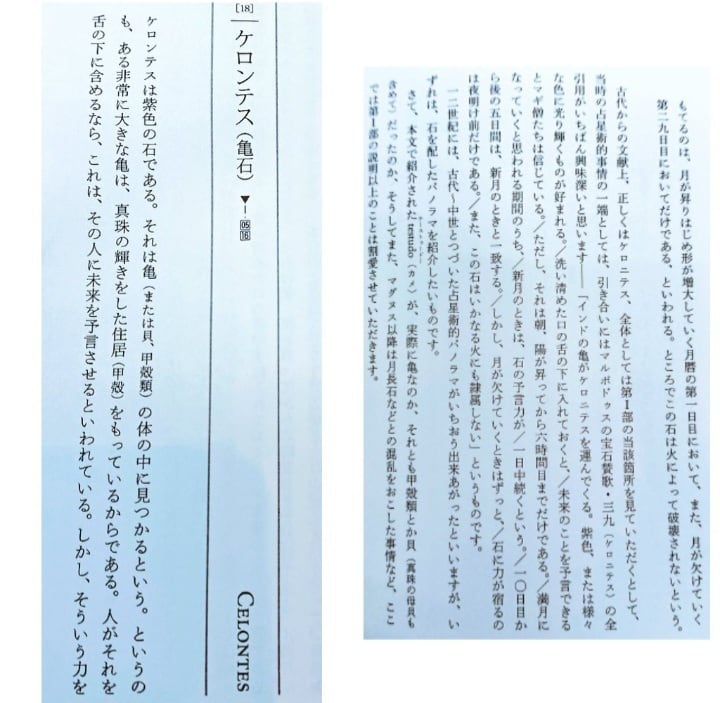 [18] ケロンテス（亀石）▼Ⅰ-05 10 CELONTES
ケロンテスは紫色の石である。それは亀（または貝、甲殻類）の体の中に見つかるという。というの
も、ある非常に大きな亀は、真珠の輝きをした住居（甲殻）をもっているからである。人がそれを
舌の下に含めるなら、これは、その人に未来を予言させるといわれている。しかし、そういう力を
もてるのは、月が昇りはじめ形が増大していく月暦の第一日目において、また、月が欠けていく
第二九日目においてだけである、といわれる。ところでこの石は火によって破壊されないという。
古代からの文献上、正しくはケロニテス、全体としては第Ⅰ部の当該箇所を見ていただくとして、
当時の占星術的事情の一端としては、引き合いにはマルボドゥスの宝石賛歌・三九（ケロニテス）の全
引用がいちばん興味深いと思います――「インドの亀がケロニテスを運んでくる。紫色、または様々
な色に光り輝くものが好まれる。／洗い清めた口の舌の下に入れておくと、／未来のことを予言できる
とマギ僧たちは信じている。／ただし、それは朝、陽が昇ってから六時間目までだけである。／満月に
なっていくと思われる期間のうち、／新月のときは、石の予言力が／一日中続くという。／一〇日目か
ら後の五日間は、新月のときと一致する。／しかし、月が欠けていくときはずっと、／石に力が宿るの
は夜明け前だけである。／また、この石はいかなる火にも隷属しない」というものです。
一二世紀には、古代〜中世とつづいた占星術的パノラマがいちおう出来あがったといいますが、い
ずれは、石を配したパノラマを紹介したいものです。
さて、本文で紹介された testudo（カメ）が、実際に亀なのか、それとも甲殻類とか貝（真珠の母貝も
含めて）だったのか、そうしてまた、マグヌス以降は月長石などとの混乱をおこした事情など、ここ
では第Ⅰ部の説明以上のことは割愛させていただきます。